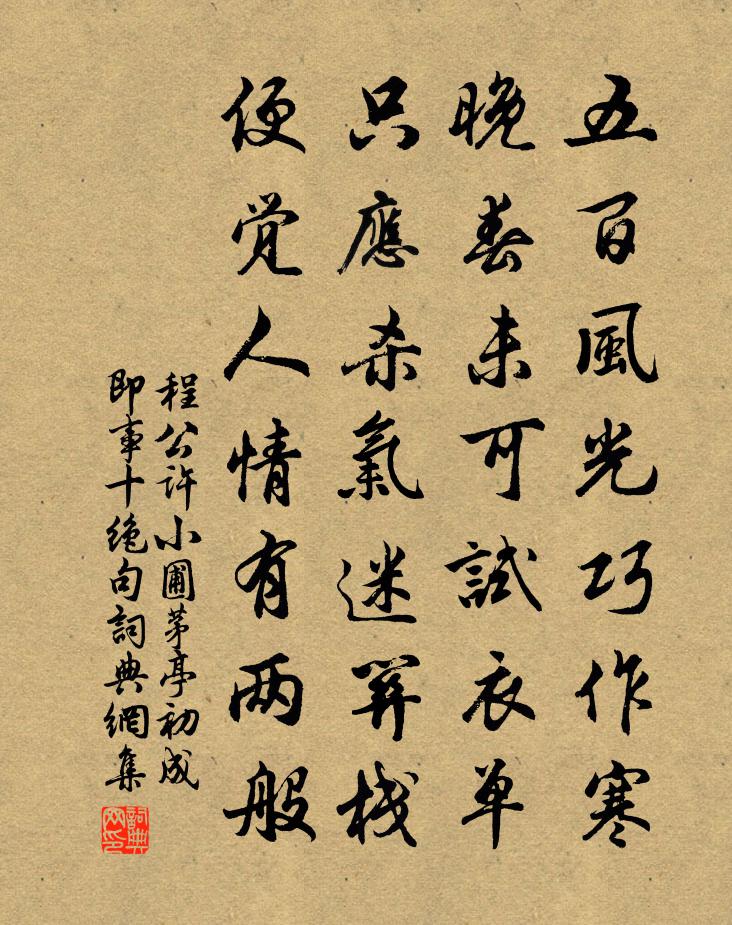 五百風光巧作寒
晚春未可試衣单
只應杀氣迷関栈
便觉人情有两般
程公許小圃茅亭初成
即事十绝句詞典網集
詞典网印